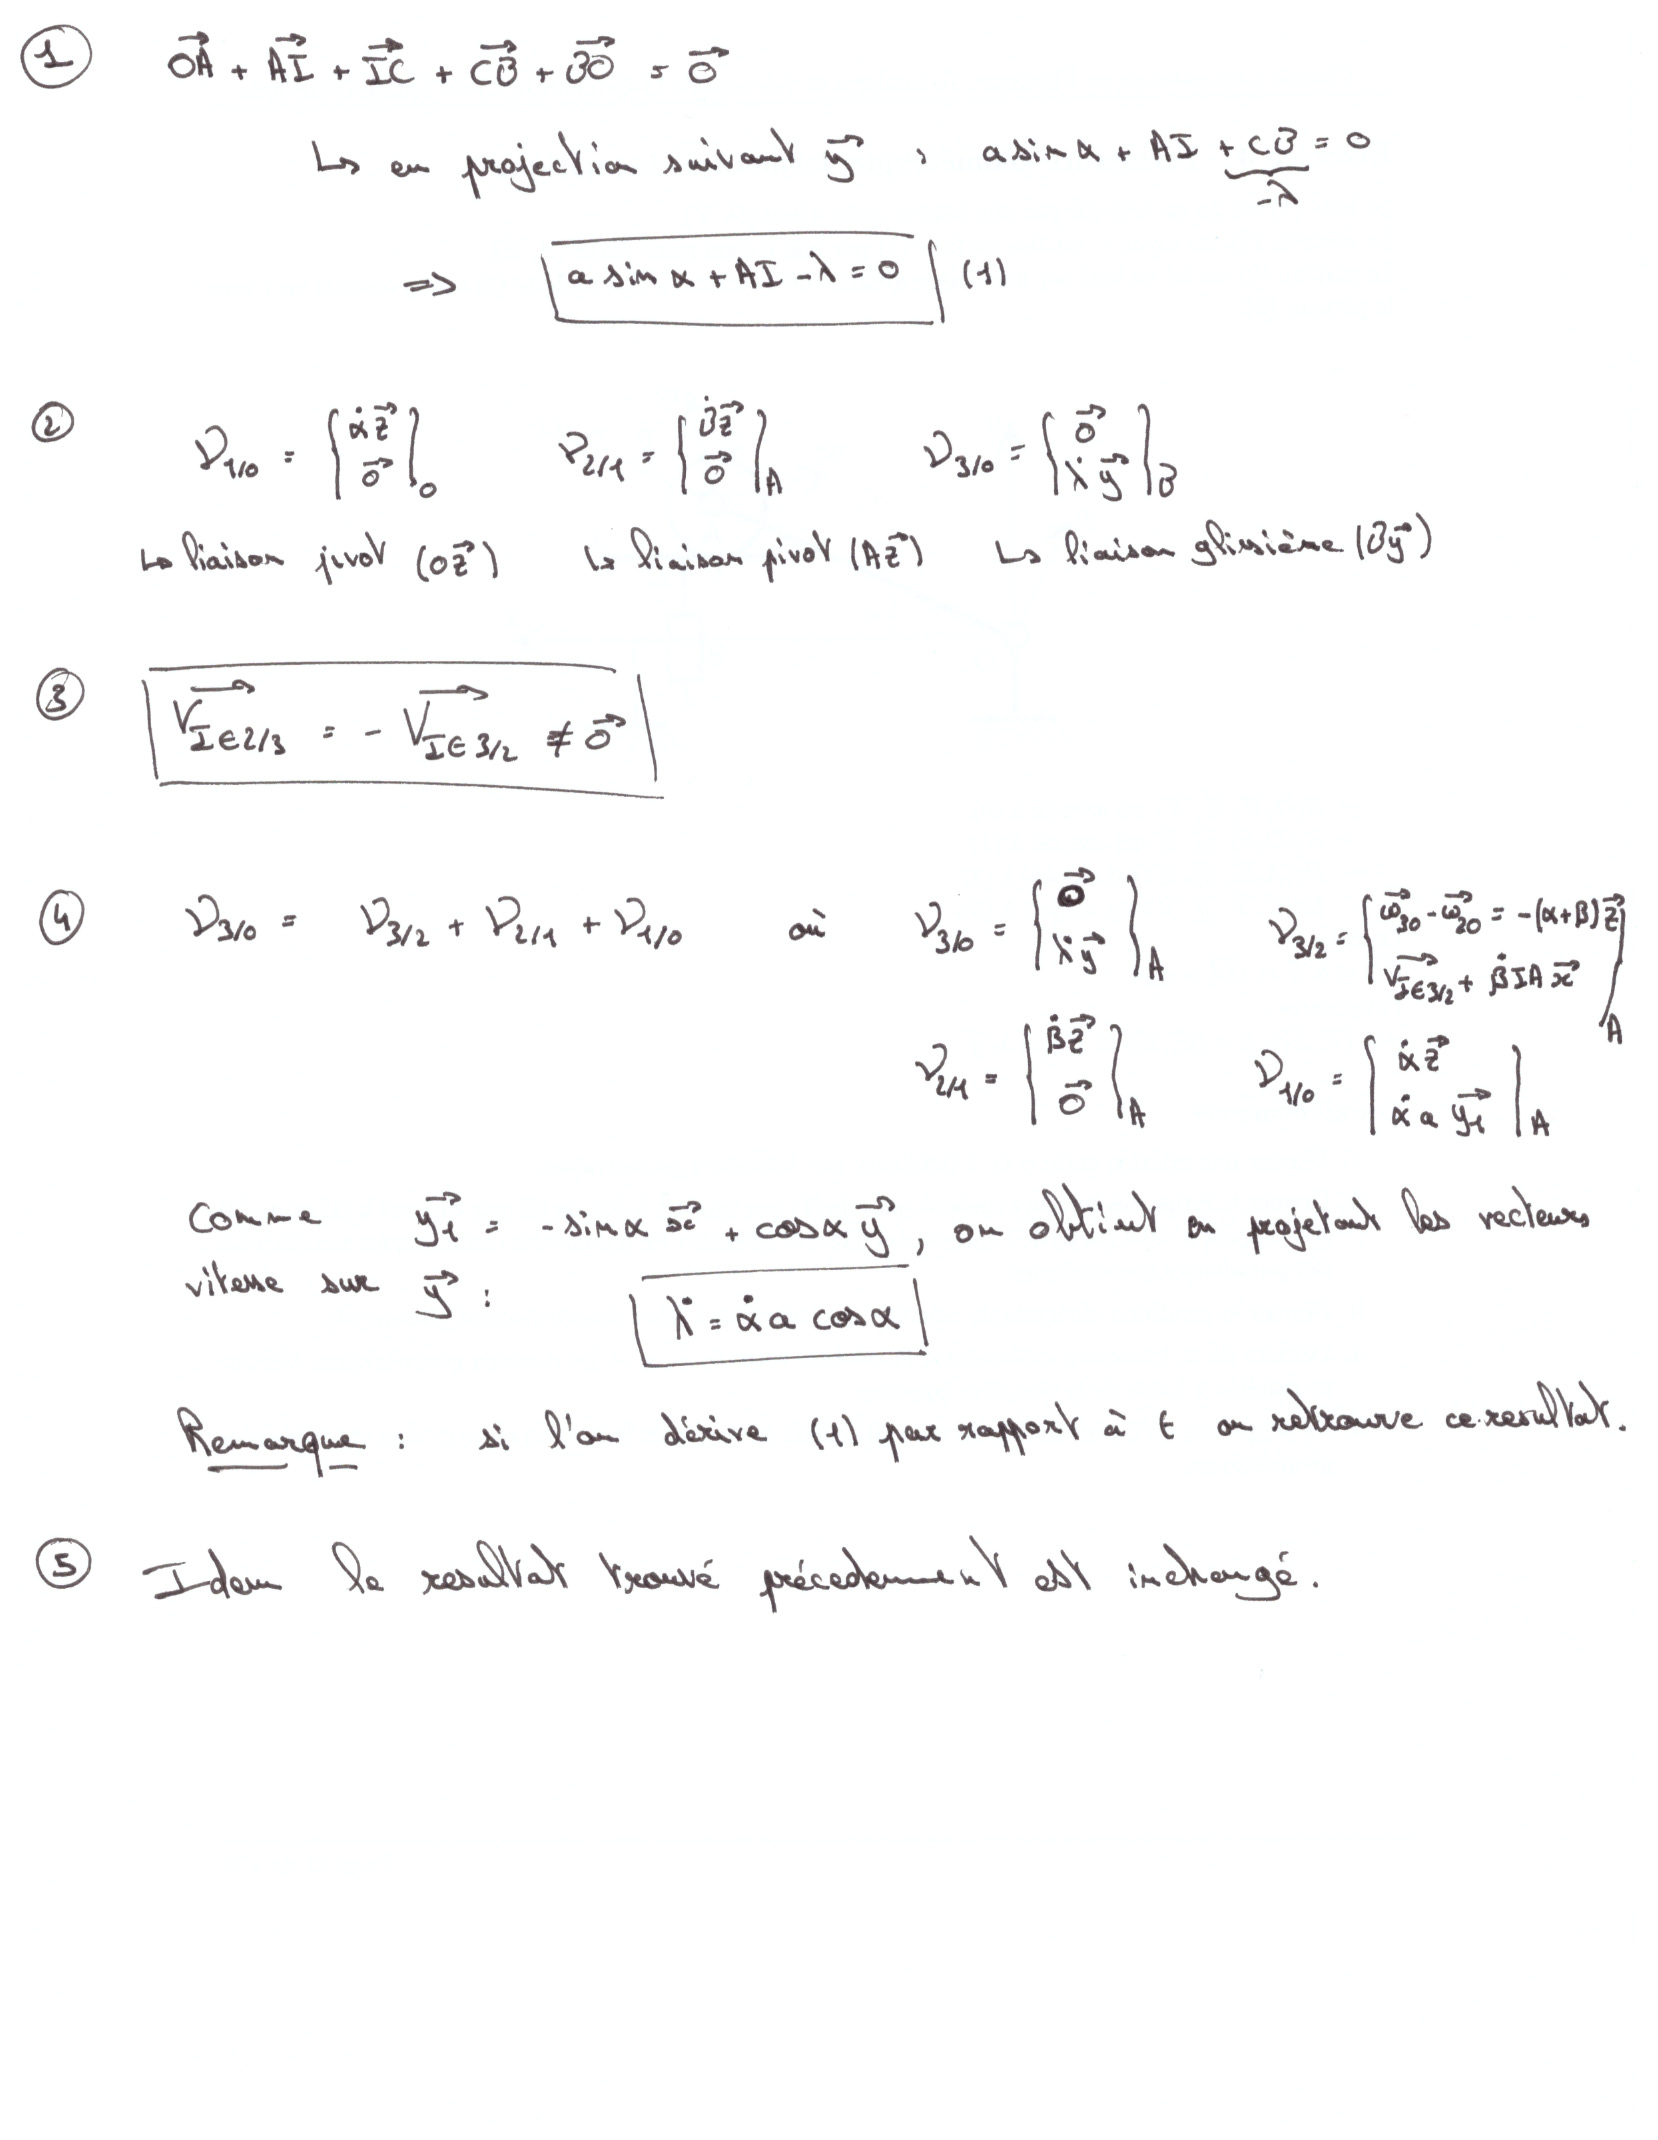 ① $\vec{OA} + \vec{AI} + \vec{IC} + \vec{CB} + \vec{BO} = \vec{0}$
↳ en projection suivant $\vec{y}$ , $a \sin\alpha + AI + \underbrace{CB}_{-\lambda} = 0$
=> $\boxed{a \sin\alpha + AI - \lambda = 0}$ (1)
② $\mathcal{V}_{1/0} = \begin{Bmatrix} \dot{\alpha}\vec{z} \\ \vec{0} \end{Bmatrix}_O$ $\mathcal{V}_{2/1} = \begin{Bmatrix} \dot{\beta}\vec{z} \\ \vec{0} \end{Bmatrix}_A$ $\mathcal{V}_{3/0} = \begin{Bmatrix} \vec{0} \\ \dot{\lambda}\vec{y} \end{Bmatrix}_B$
↳ liaison pivot $(O\vec{z})$ ↳ liaison pivot $(A\vec{z})$ ↳ liaison glissière $(B\vec{y})$
③ $\boxed{\vec{V_{I \in 2/3}} = - \vec{V_{I \in 3/2}} \neq \vec{0}}$
④ $\mathcal{V}_{3/0} = \mathcal{V}_{3/2} + \mathcal{V}_{2/1} + \mathcal{V}_{1/0}$ où $\mathcal{V}_{3/0} = \begin{Bmatrix} \vec{0} \\ \dot{\lambda}\vec{y} \end{Bmatrix}_A$ $\mathcal{V}_{3/2} = \begin{Bmatrix} \vec{\omega_{30}} - \vec{\omega_{20}} = -(\alpha+\beta)\vec{z} \\ \vec{V_{I \in 3/2}} + \dot{\beta} IA \vec{x} \end{Bmatrix}_A$
$\mathcal{V}_{2/1} = \begin{Bmatrix} \dot{\beta}\vec{z} \\ \vec{0} \end{Bmatrix}_A$ $\mathcal{V}_{1/0} = \begin{Bmatrix} \dot{\alpha}\vec{z} \\ \dot{\alpha} a \vec{y_1} \end{Bmatrix}_A$
Comme $\vec{y_1} = -\sin\alpha \vec{x} + \cos\alpha \vec{y}$, on obtient en projetant les vecteurs
vitesse sur $\vec{y}$ : $\boxed{\dot{\lambda} = \dot{\alpha} a \cos\alpha}$
Remarque : si l'on dérive (1) par rapport à t on retrouve ce resultat.
⑤ Idem le resultat trouvé précedemment est inchangé.